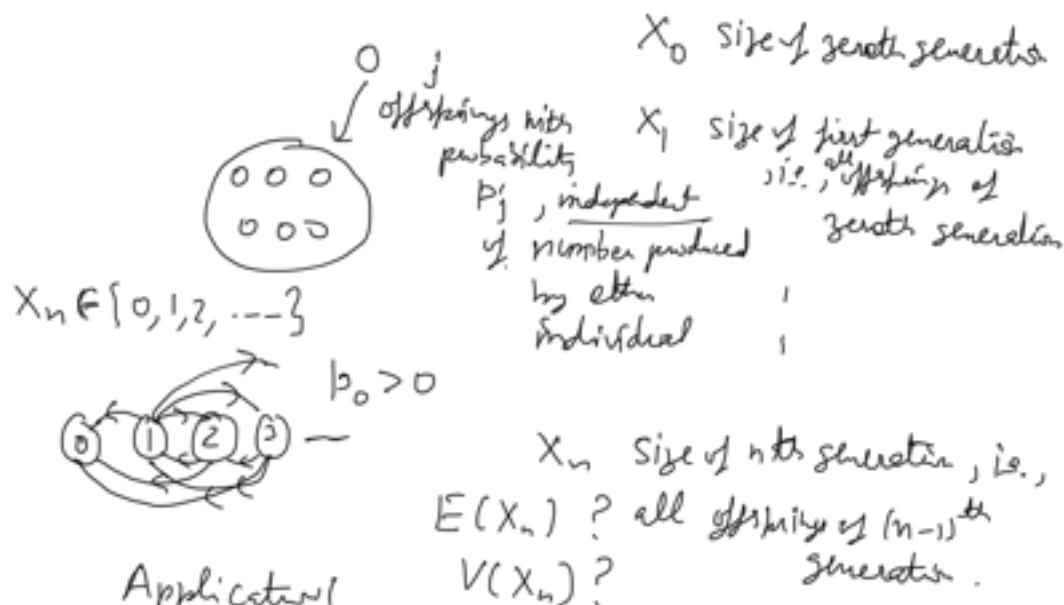 X_0 size of zeroth generation
0 j
offsprings with
probability
P_j , independent
of number produced
by other
individual
X_1 size of first generation
, i.e., all offsprings of
zeroth generation
X_n ∈ {0, 1, 2, ----}
p_0 > 0
0 1 2 3 —
X_n size of nth generation, i.e.,
E(X_n) ? all offsprings of (n-1)^th
V(X_n) ? generation.
Applications